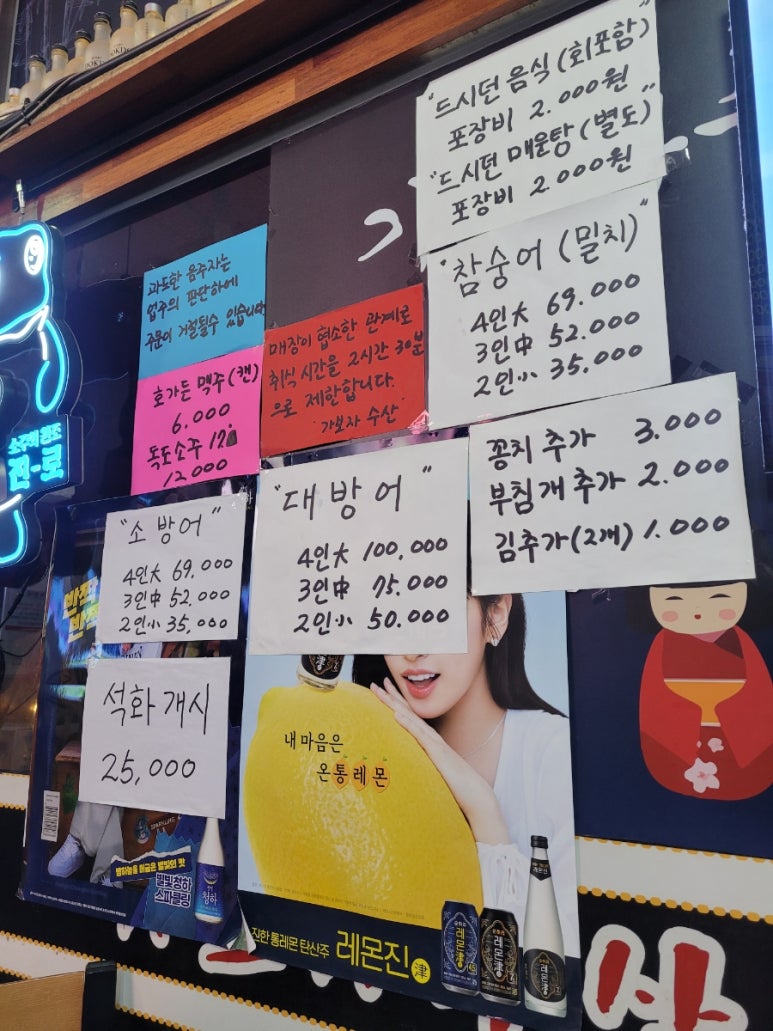 "드시던 음식(회포함)"
포장비 2.000원
"드시던 매운탕(별도)"
포장비 2000원
"참숭어(밀치)"
4인大 69.000
3인中 52.000
2인小 35.000
과도한 음주자는
업주의 판단하에
주문이 거절될수 있습니다
매장이 협소한 관계로
취식 시간을 2시간 30분
으로 제한합니다.
가보자 수산
호가든 맥주(캔)
6.000
독도소주 17°
12000
꽁치 추가 3.000
부침개 추가 2.000
김추가(2개) 1.000
"대방어"
4인大 100,000
3인中 75.000
2인小 50.000
"소방어"
4인大 69.000
3인中 52.000
2인小 35,000
석화개시
25,000
소주의 원조
진-로
내 마음은
온통 레몬
밤하늘을 머금은 별빛의 맛
별빛청하
스파클링
청하
진한 통레몬 탄산주 레몬진 津
레몬津
레몬津
레몬津
사